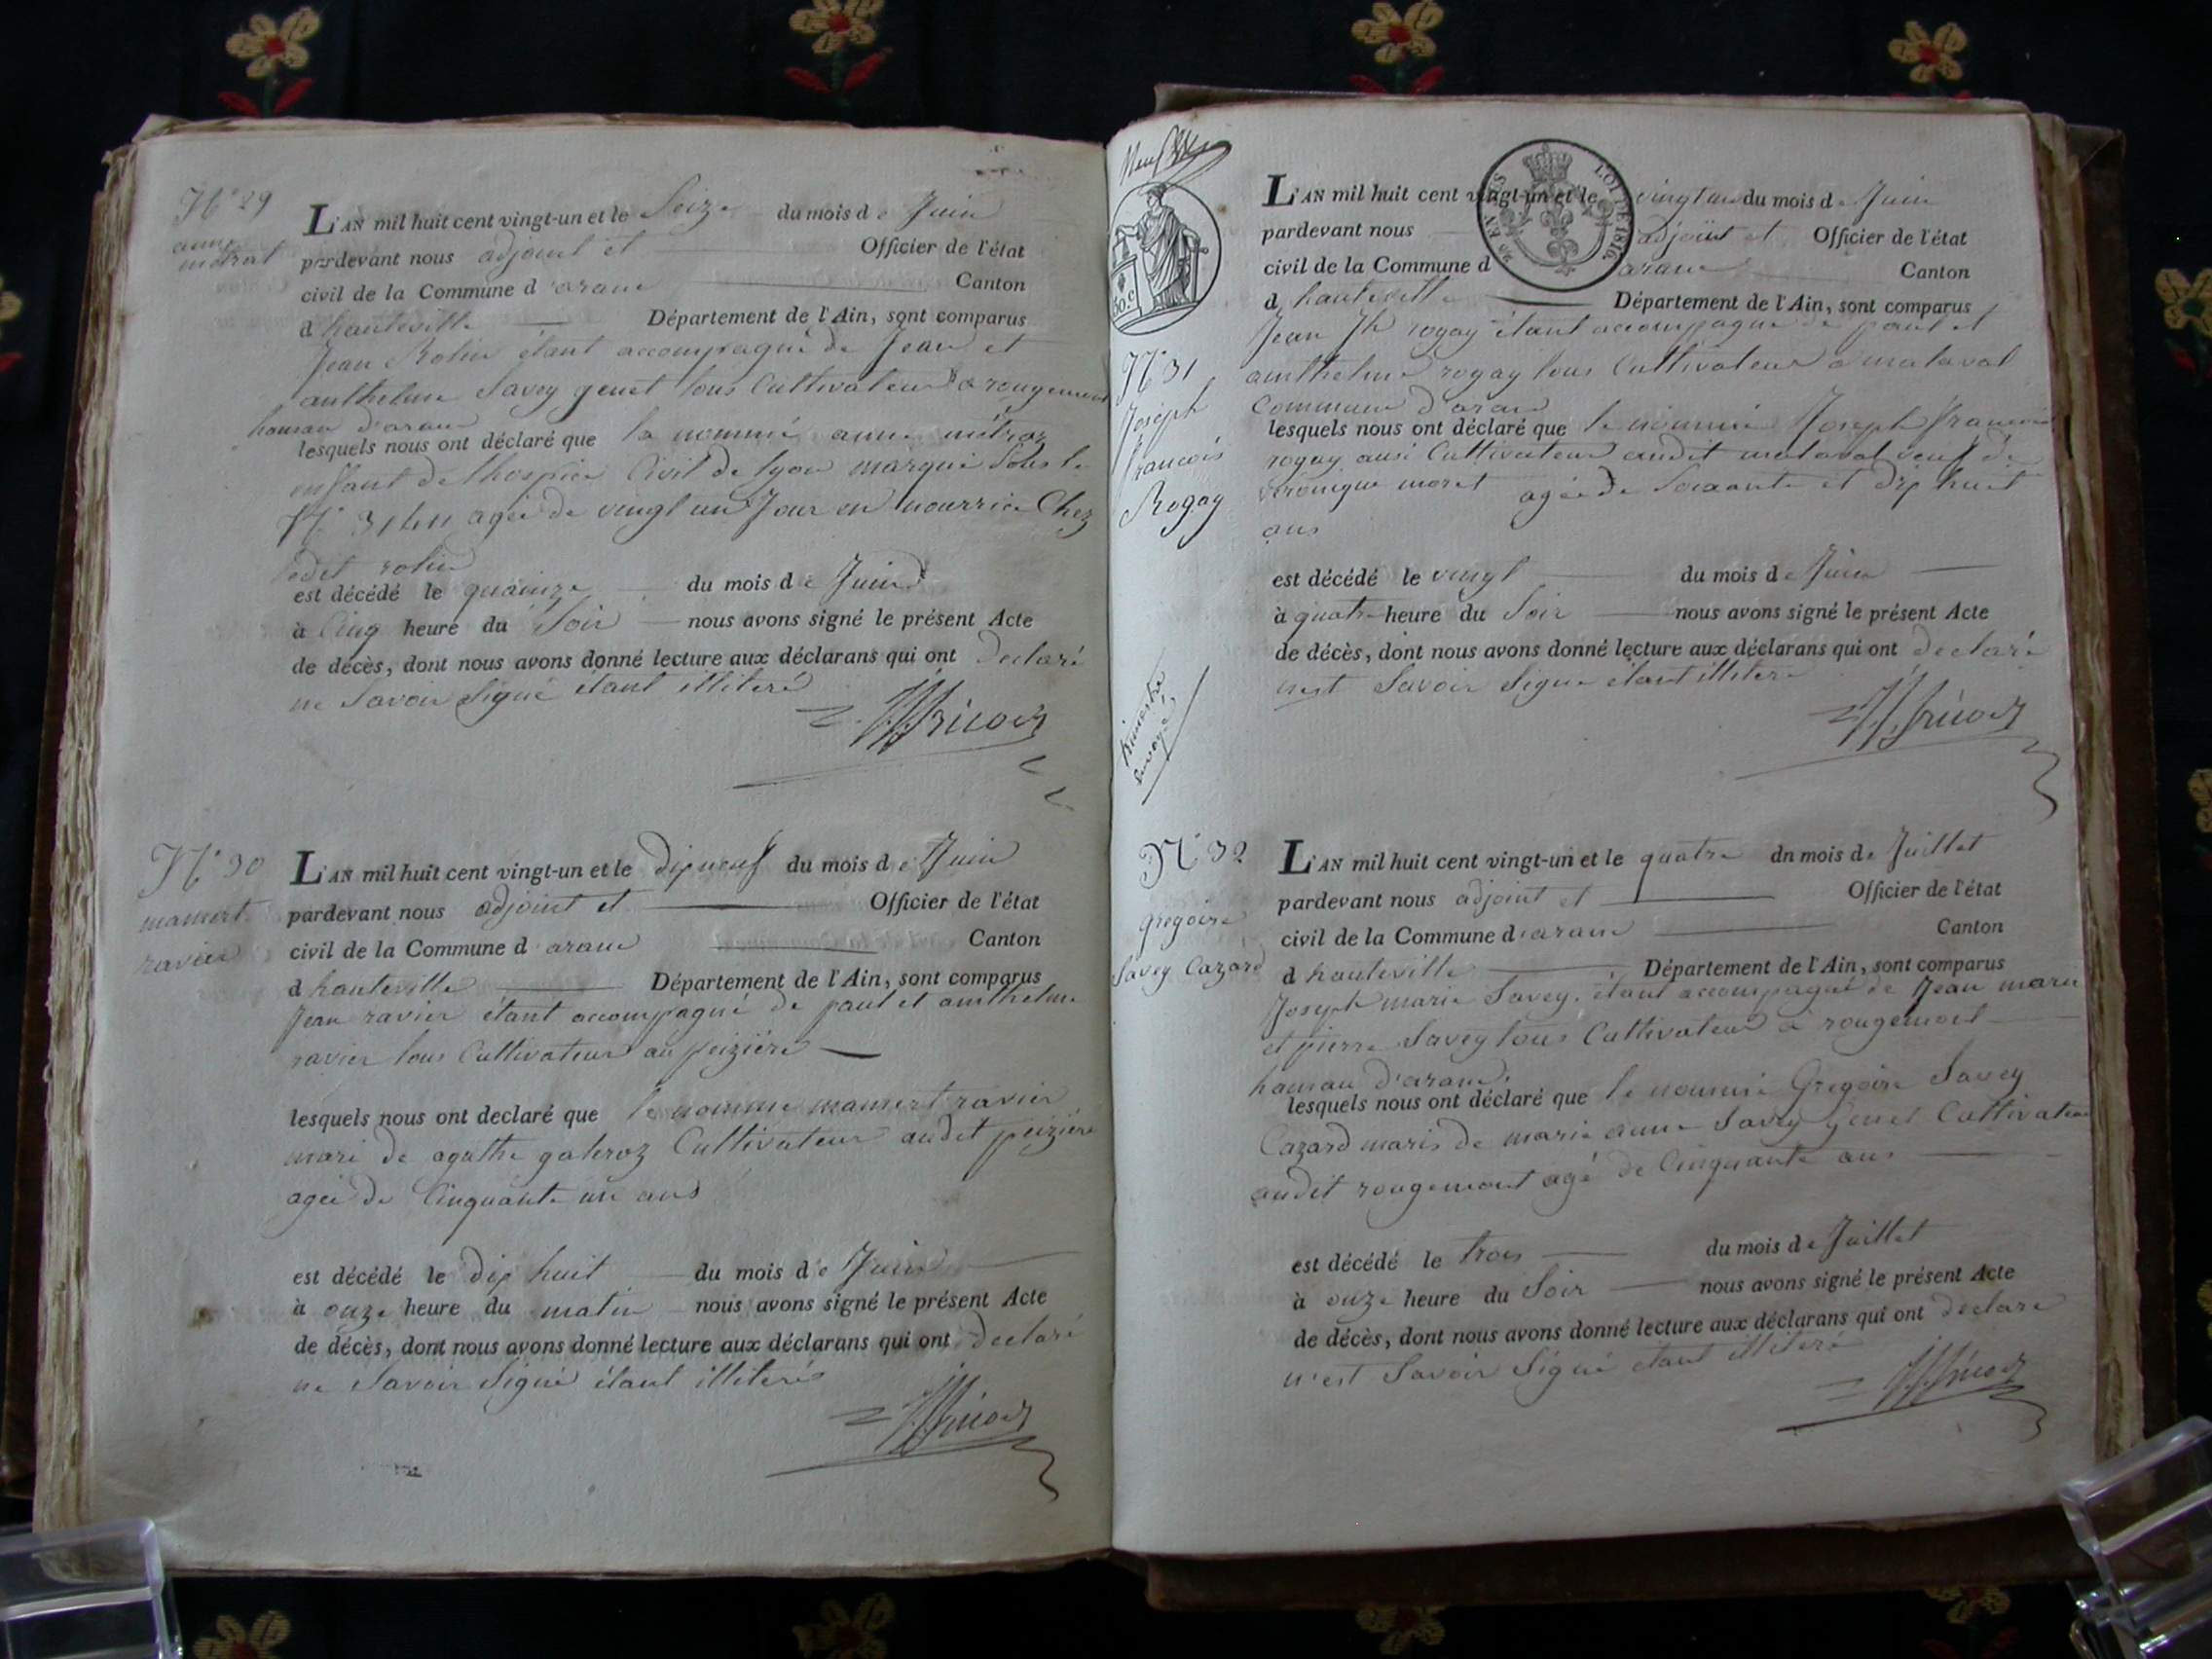 N° 29
anne
métrat
L'AN mil huit cent vingt-un et le Seize du mois de Juin
pardevant nous adjoint et Officier de l'état
civil de la Commune d'aranc Canton
d hauteville Département de l'Ain, sont comparus
Jean Rolin étant accompagné de Jean et
anthelme Savey genet tous Cultivateurs a rougemont
hamau d'aranc
lesquels nous ont déclaré que la nommé anne métraz
enfant de lhospice Civil de lyon marqué Sous le
N° agée de vingt un Jour en nourrice Chez
ledit rolin
est décédé le quainze du mois de Juin
à Cinq heure du Soir nous avons signé le présent Acte
de décès, dont nous avons donné lecture aux déclarans qui ont declaré
ne Savoir Signé étant illiteré
N° 30
mamert
ravier
L'AN mil huit cent vingt-un et le dix neuf du mois de Juin
pardevant nous adjoint et Officier de l'état
civil de la Commune d aranc Canton
d hauteville Département de l'Ain, sont comparus
Jean ravier étant accompagné de paul et amthelme
ravier tous Cultivateur au peizière
lesquels nous ont declaré que le nomme mamert ravier
mari de agathe galeroz Cultivateur audit peizière
agée de Cinquante un ans
est décédé le dix huit du mois de Juin
à onze heure du matin nous avons signé le présent Acte
de décès, dont nous avons donné lecture aux déclarans qui ont declaré
ne Savoir Signé étant illiteré
N° 31
Joseph
francois
Rogay
L'AN mil huit cent vingt-un et le vingt un du mois de Juin
pardevant nous adjoint et Officier de l'état
civil de la Commune d aranc Canton
d hauteville Département de l'Ain, sont comparus
Jean Jh rogay étant accompagné de paul et
amthelme rogay tous Cultivateur a malaval
Commune d'aranc
lesquels nous ont déclaré que le nommé Joseph francois
rogay ausi Cultivateur audit malaval veuf de
véronique moret agée de Soixante et dix huit
ans
est décédé le vingt du mois de Juin
à quatre heure du Soir nous avons signé le présent Acte
de décès, dont nous avons donné lecture aux déclarans qui ont declaré
nest Savoir Signe étant illiteré
trimestre
envoyé
N° 32
gregoire
Savey Cazard
L'AN mil huit cent vingt-un et le quatre dn mois de Juillet
pardevant nous adjoint et Officier de l'état
civil de la Commune d aranc Canton
d hauteville Département de l'Ain, sont comparus
Joseph marie Savey étant accompagné de Jean marie
et pierre Savey tous Cultivateur a rougemont
hamau d'aranc
lesquels nous ont déclaré que le nommé Gregoire Savey
Cazard maris de marie anne Savey genet Cultivateur
audit rougemont agé de Cinquante ans
est décédé le trois du mois de Juillet
à onze heure du Soir nous avons signé le présent Acte
de décès, dont nous avons donné lecture aux déclarans qui ont declaré
n'est Savoir Signé étant illiteré